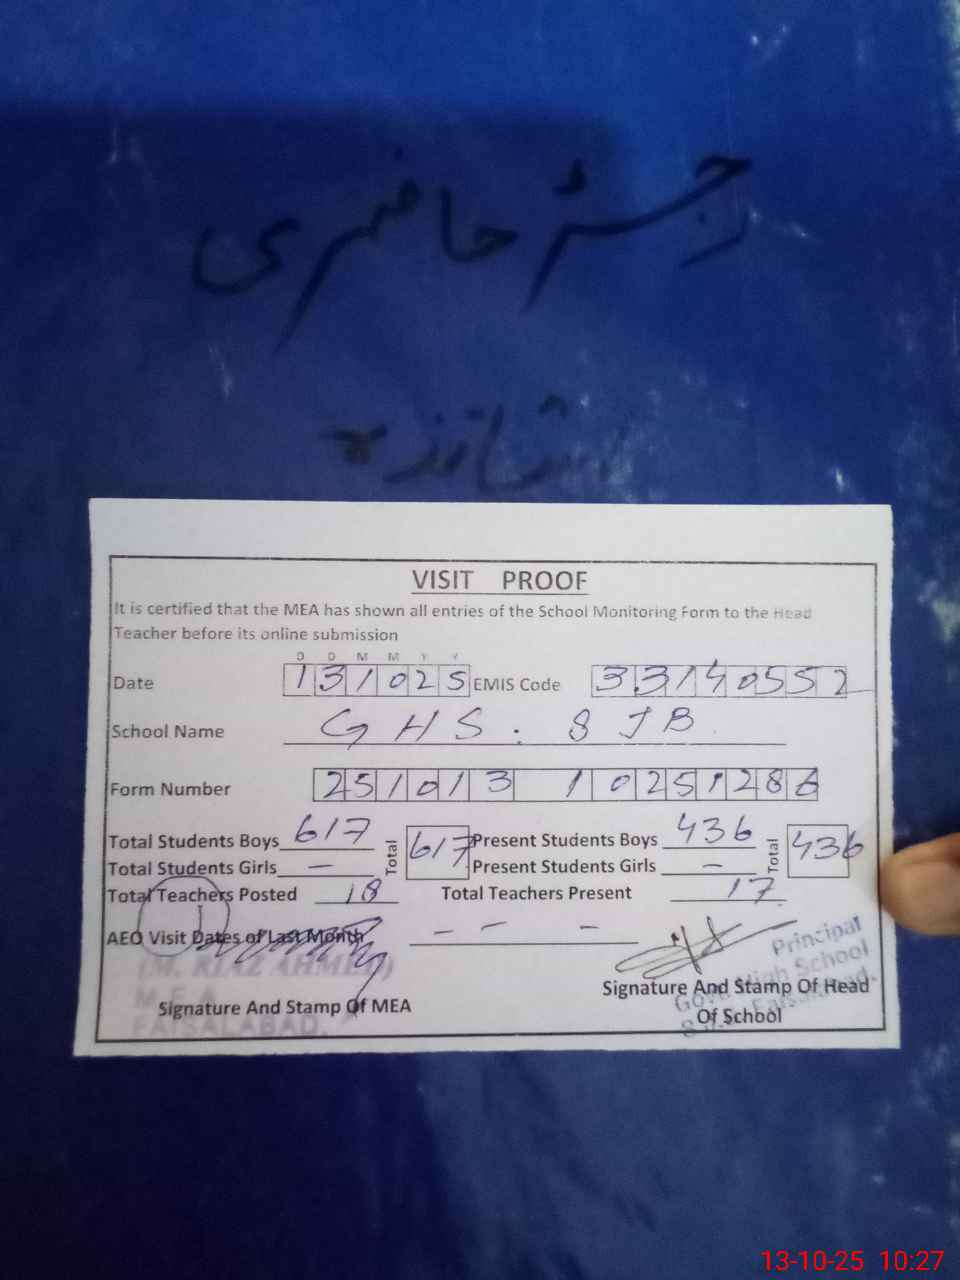 رجسٹر حاضری
اساتذہ
VISIT PROOF
It is certified that the MEA has shown all entries of the School Monitoring Form to the Head
Teacher before its online submission
D D M M Y Y
Date 131025 EMIS Code 33140552
School Name GHS. 8 JB
Form Number 251013 10251286
Total Students Boys 617 Total 617 Present Students Boys 436 Total 436
Total Students Girls – Present Students Girls –
Total Teachers Posted 18 Total Teachers Present 17
AEO Visit Dates of Last Month – – –
(M. RIAZ AHMED)
M.E.A
FAISALABAD.
Signature And Stamp Of MEA
Principal
Govt. High School
Signature And Stamp Of Head
Of School
13-10-25 10:27